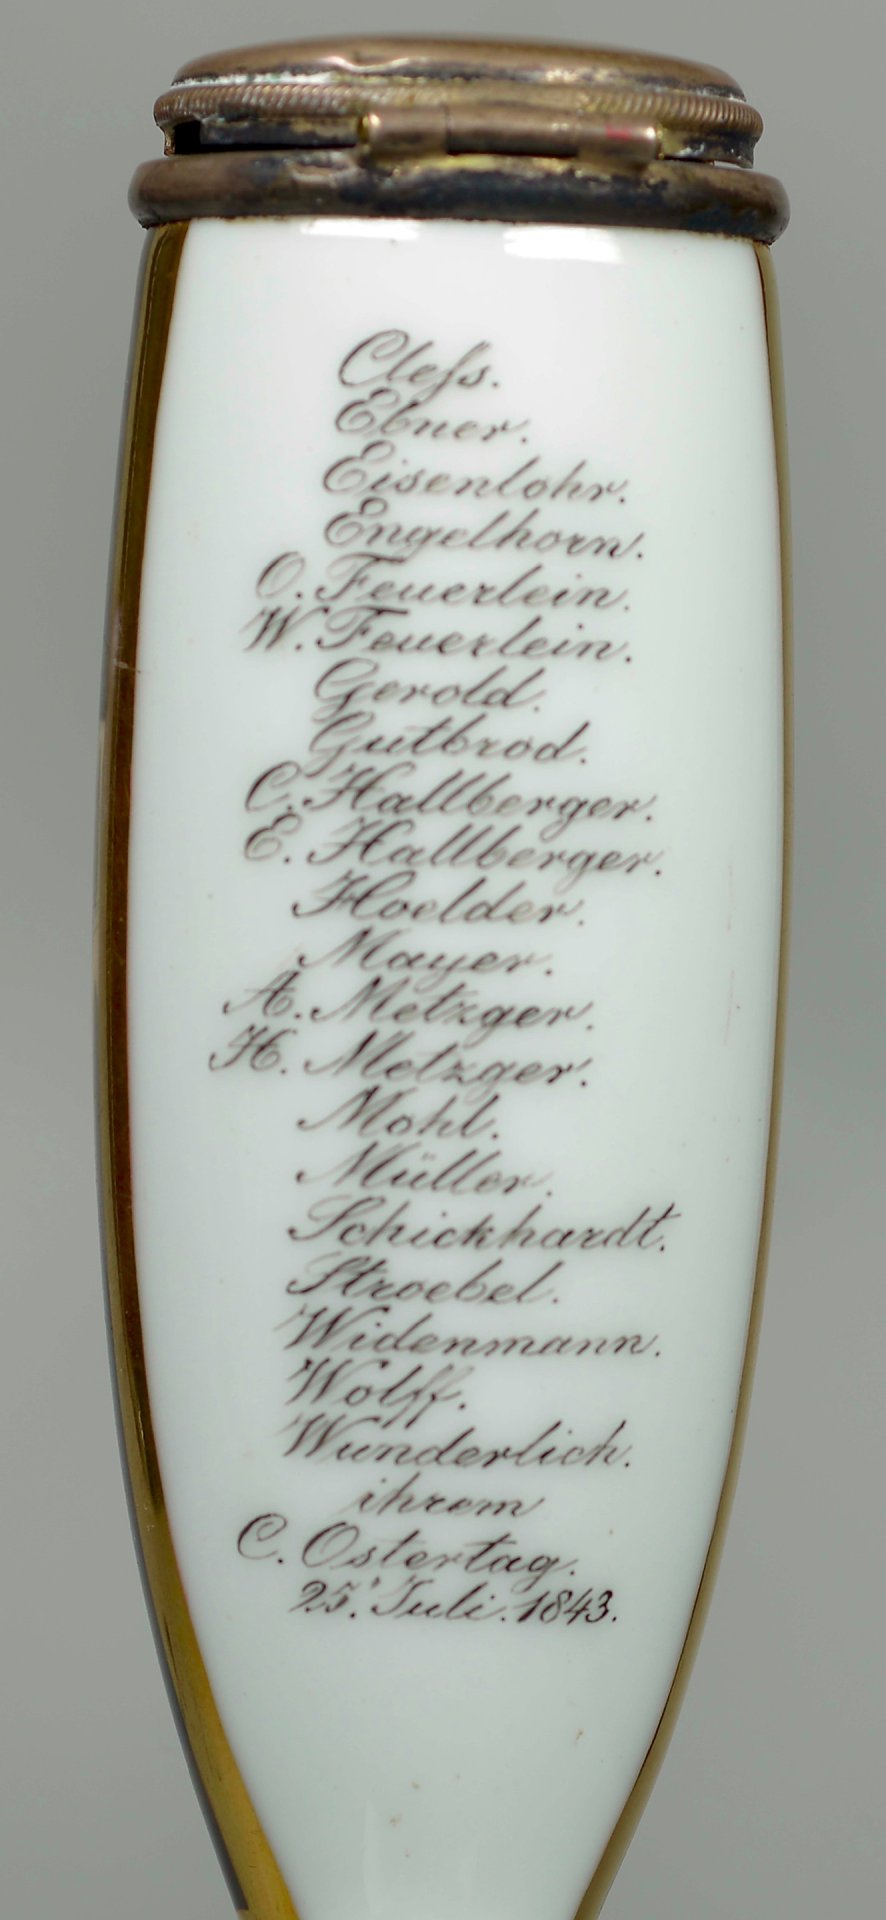 Cleſs.
Ebner.
Eisenlohr.
Engelhorn.
O. Feuerlein.
W. Feuerlein.
Gerold.
Gutbrod.
C. Hallberger.
E. Hallberger.
Hoelder.
Mayer.
A. Metzger.
H. Metzger.
Mohl.
Müller.
Schickhardt.
Stroebel.
Widenmann.
Wolff.
Wunderlich.
ihrem
C. Ostertag.
25. Juli. 1843.